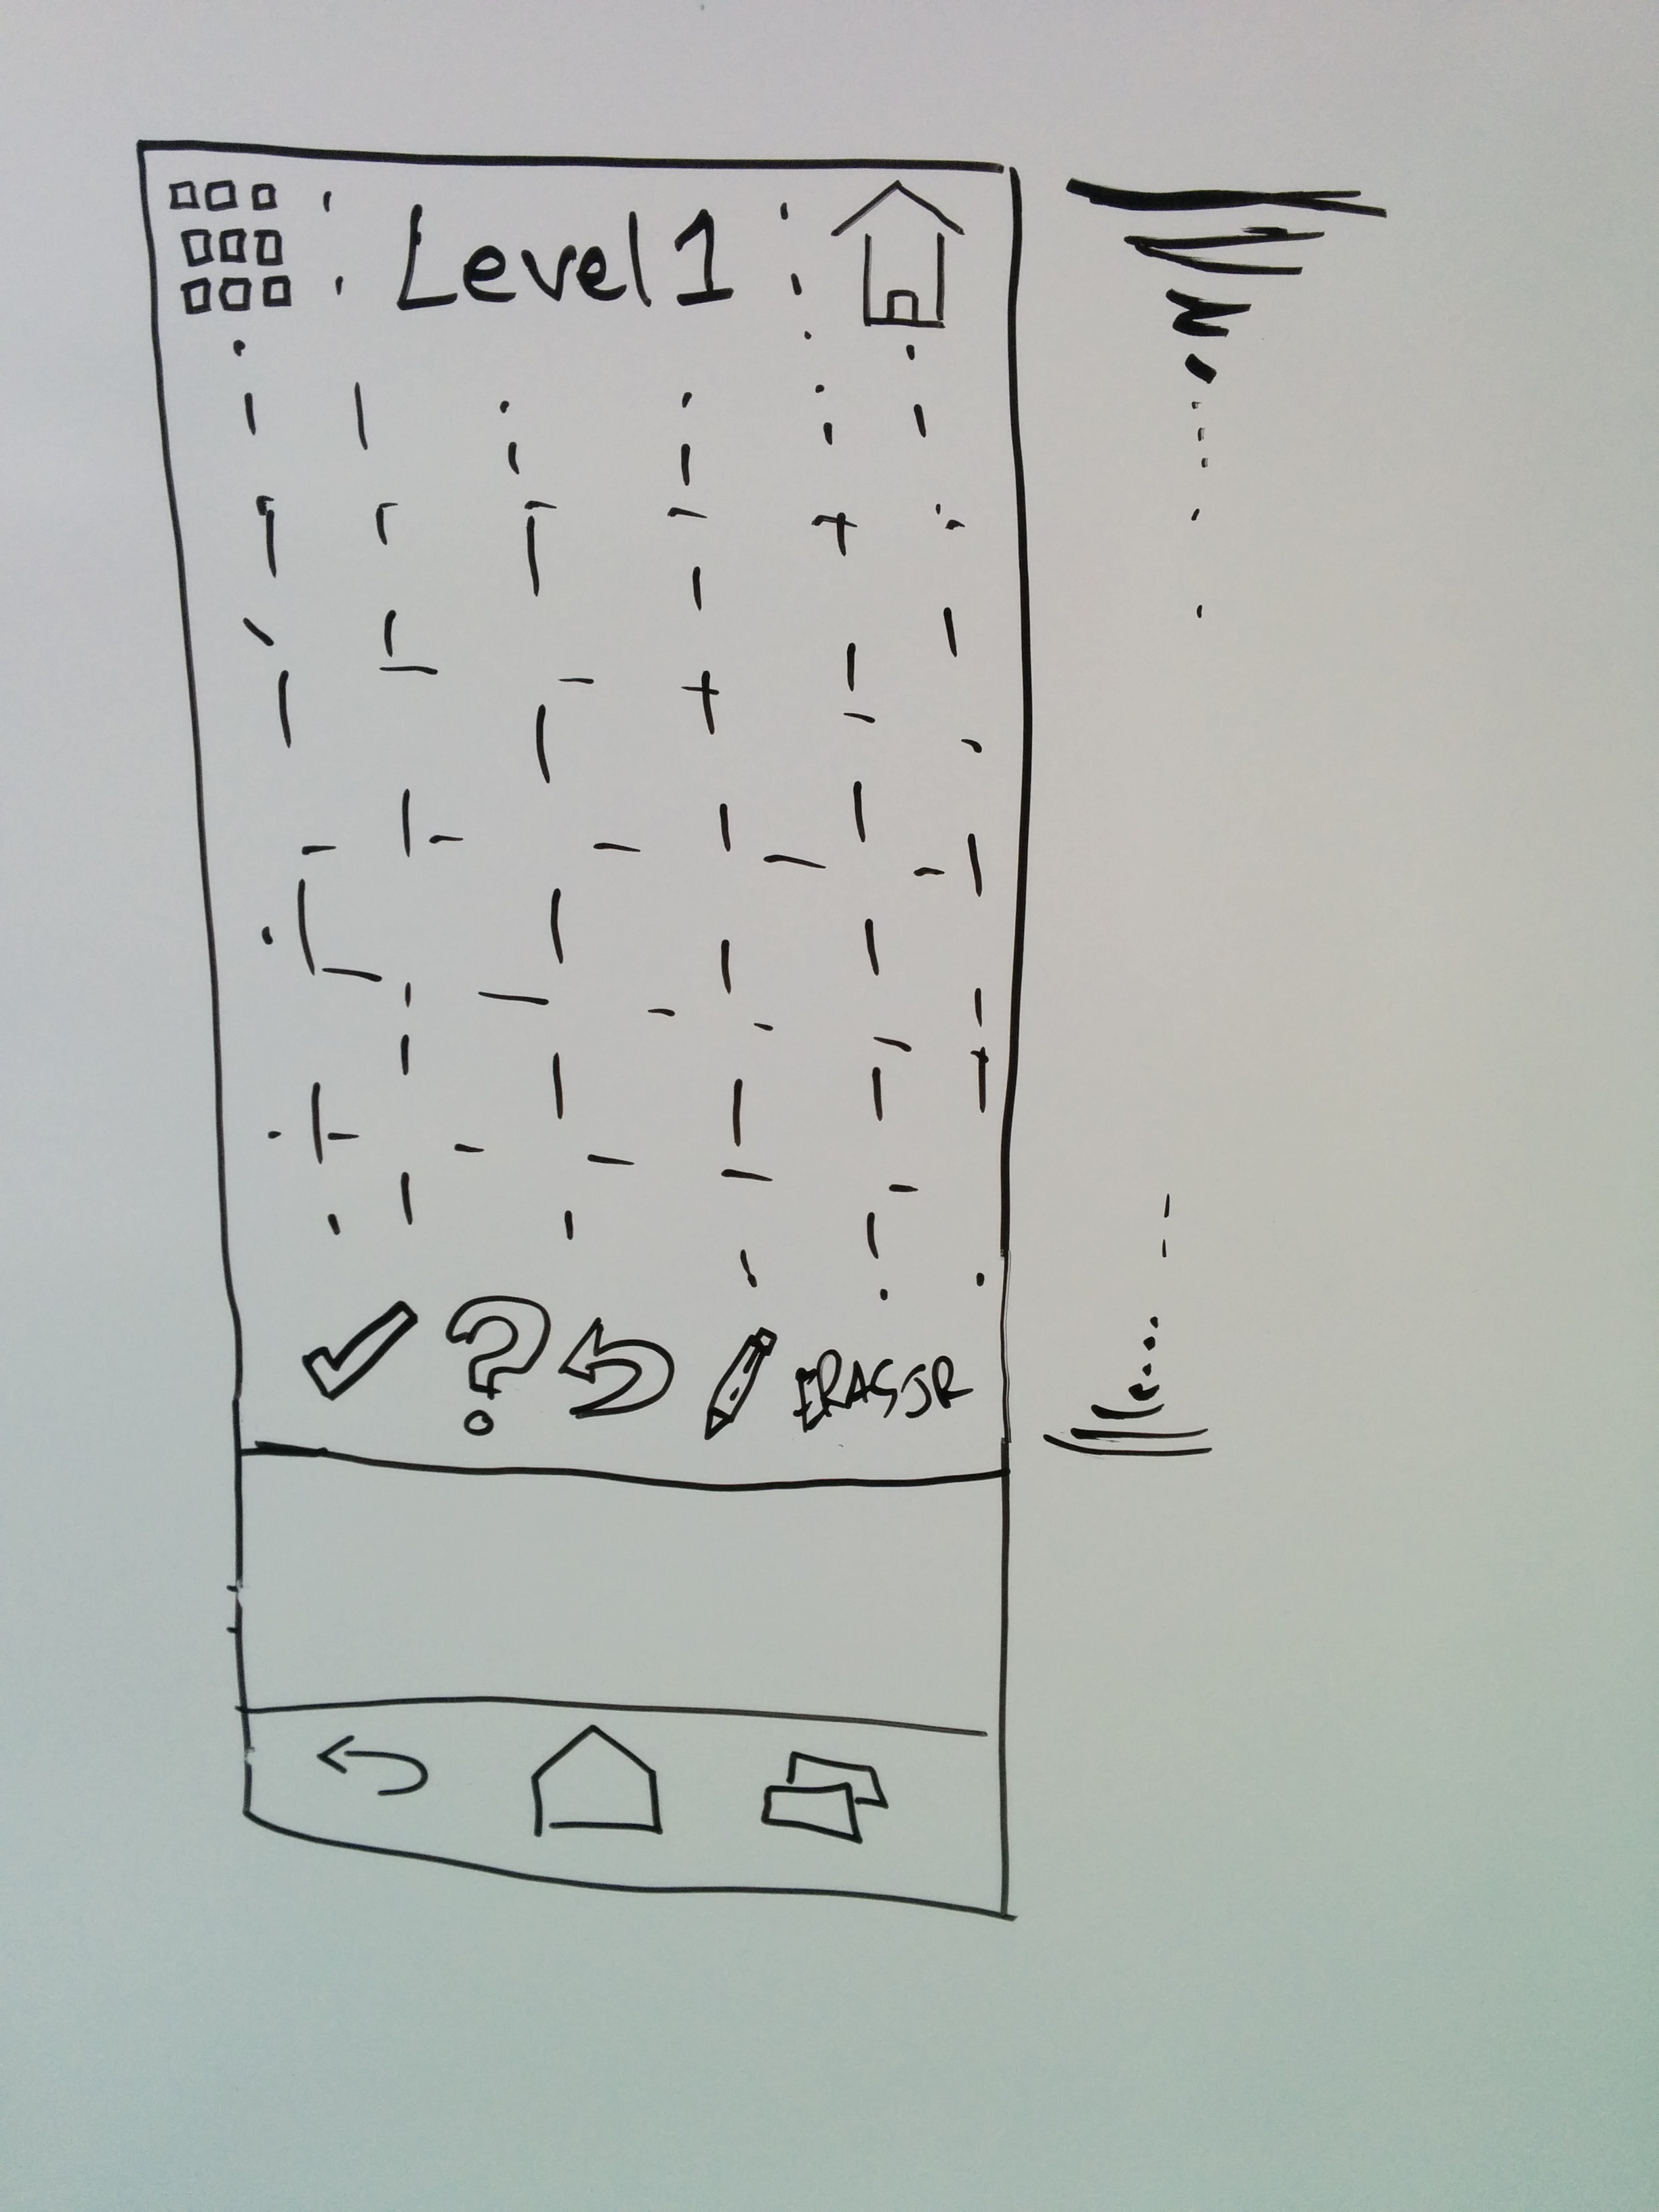 Level 1
ERASOR